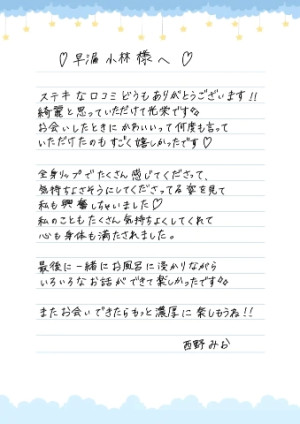 ♡ 早漏 小林 様 へ ♡
ステキ な 口コミ どうも ありがとうございます!!
綺麗 と 思っていただけて 光栄です
お会いしたときに かわいいって 何度も言って
いただけたのも すごく嬉しかったです♡
全身リップで たくさん 感じてくださって、
気持ちよさそうにしてくださってる姿を見て
私も 興奮しちゃいました♡
私のことも たくさん 気持ちよくしてくれて
心も身体も満たされました。
最後に一緒にお風呂に浸かりながら
いろいろな お話が できて 楽しかったです
またお会いできたらもっと濃厚に 楽しもうね!!
西野 みか